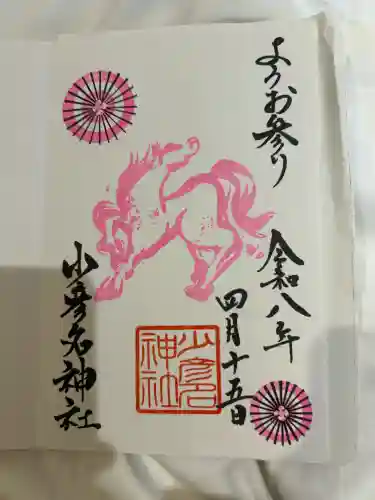 ようお参り
令和八年
四月十五日
少彦名神社
少彦名
神社